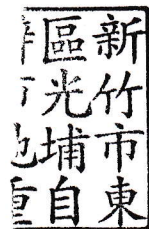 新竹市東
區光埔自